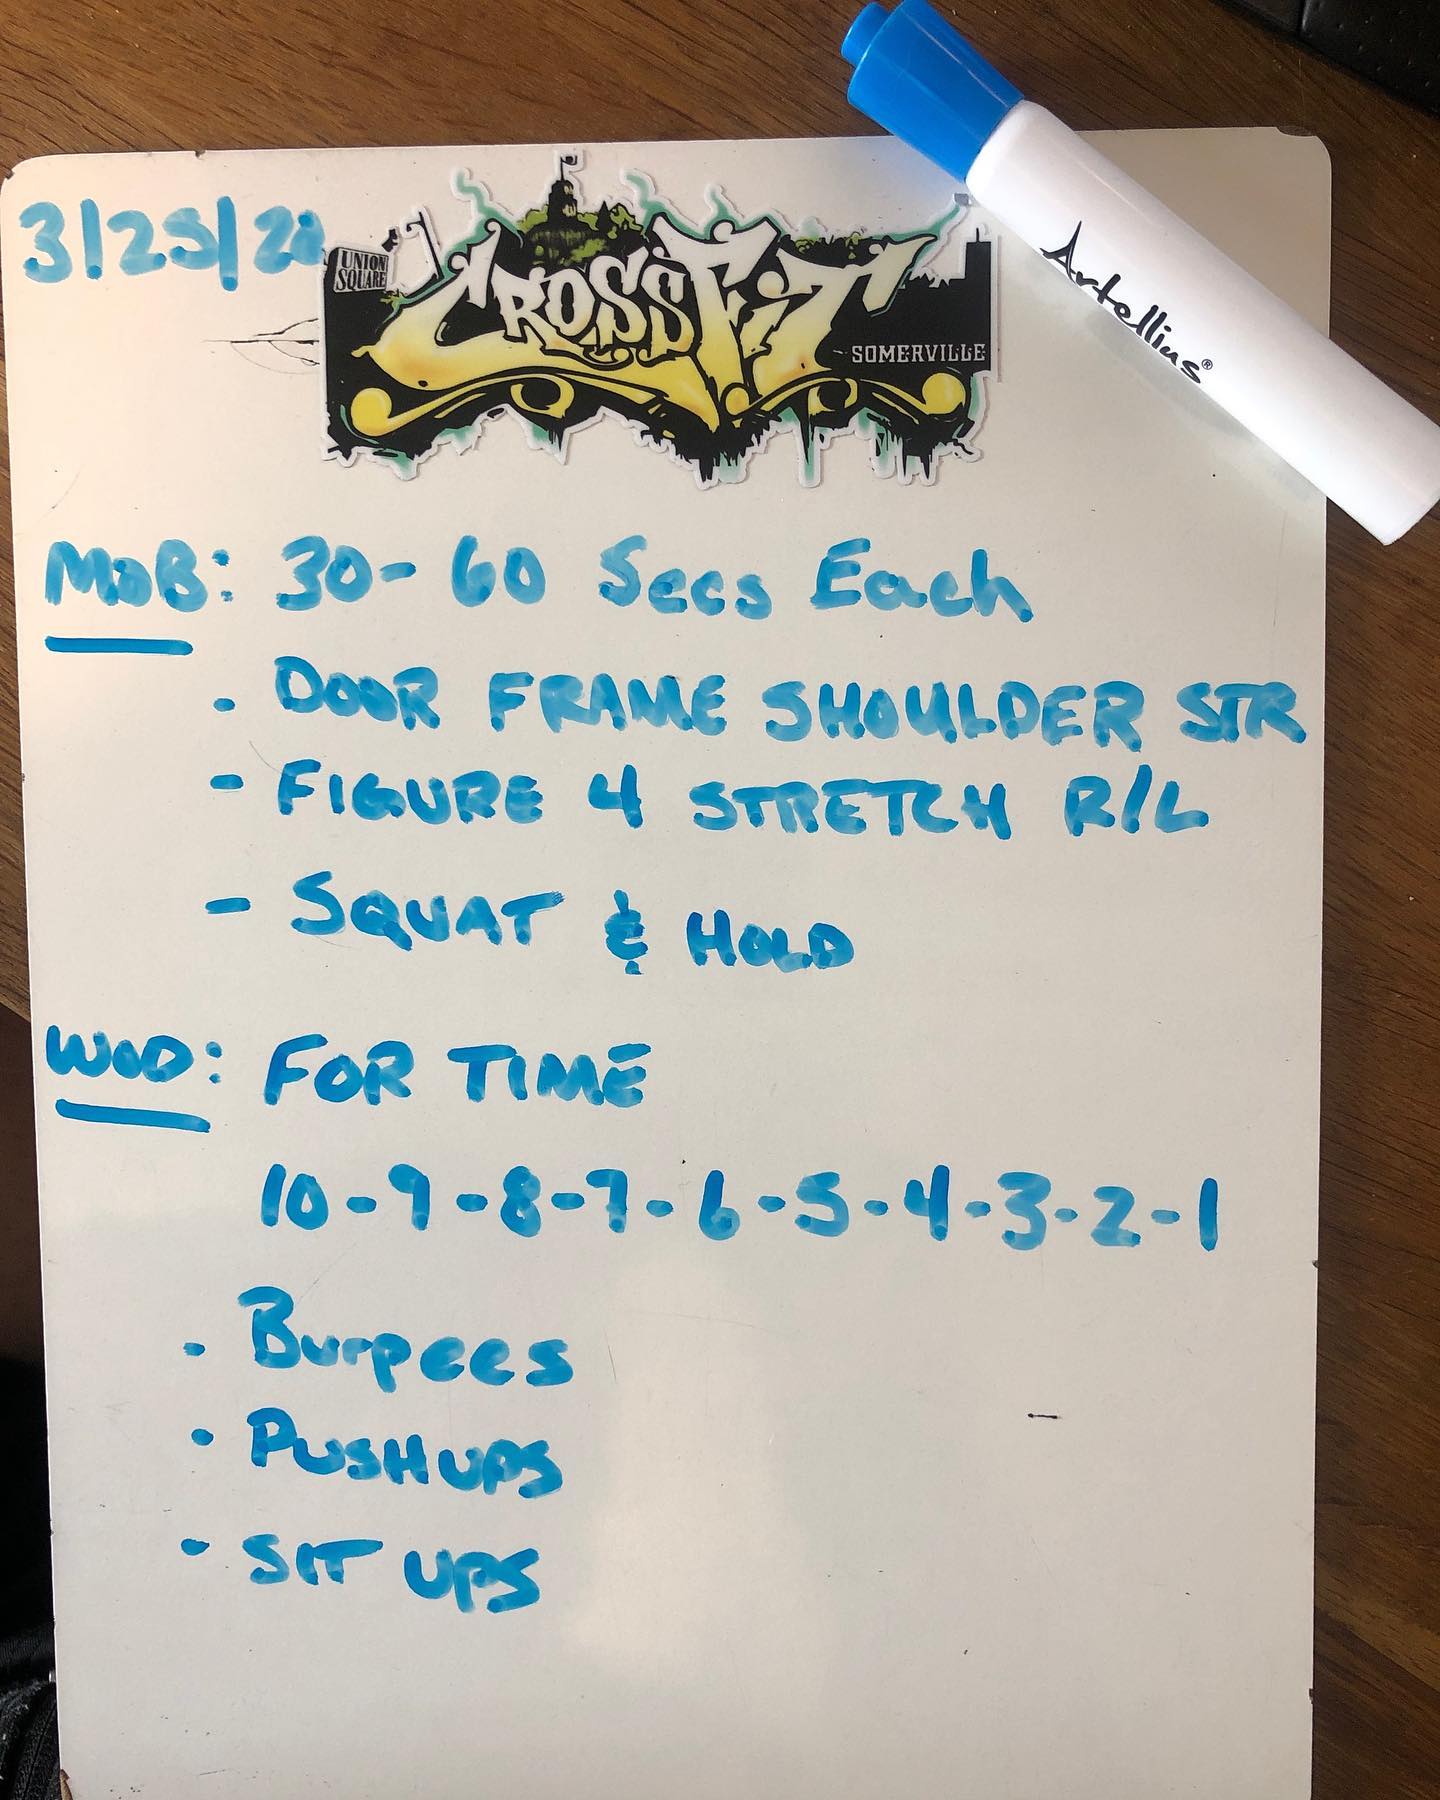 3/25/20
UNION
SQUARE
CROSSFIT
SOMERVILLE
Artellius®
MOB: 30-60 Secs Each
- DOOR FRAME SHOULDER STR
- FIGURE 4 STRETCH R/L
- SQUAT & HOLD
WOD: FOR TIME
10-9-8-7-6-5-4-3-2-1
- Burpees
- PUSHUPS
- SIT UPS